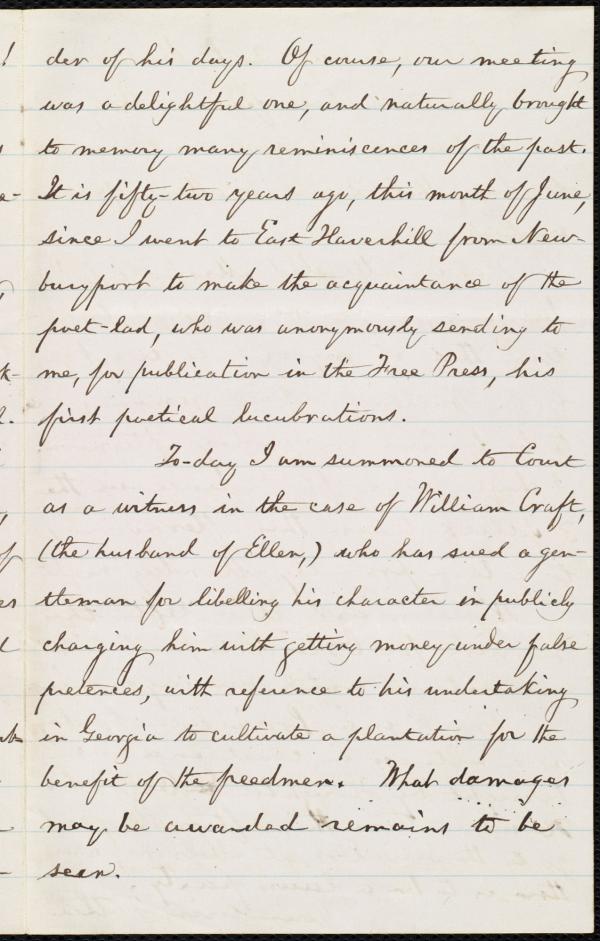 der of his days. Of course, our meeting
was a delightful one, and naturally brought
to memory many reminiscences of the past.
It is fifty-two years ago, this month of June,
since I went to East Haverhill from New-
buryport to make the acquaintance of the
poet-lad, who was anonymously sending to
me, for publication in the Free Press, his
first poetical lucubrations.
To-day I am summoned to Court
as a witness in the case of William Craft,
(the husband of Ellen,) who has sued a gen-
tleman for libelling his character in publicly
charging him with getting money under false
pretences, with reference to his undertaking
in Georgia to cultivate a plantation for the
benefit of the freedmen. What damages
may be awarded remains to be
seen.